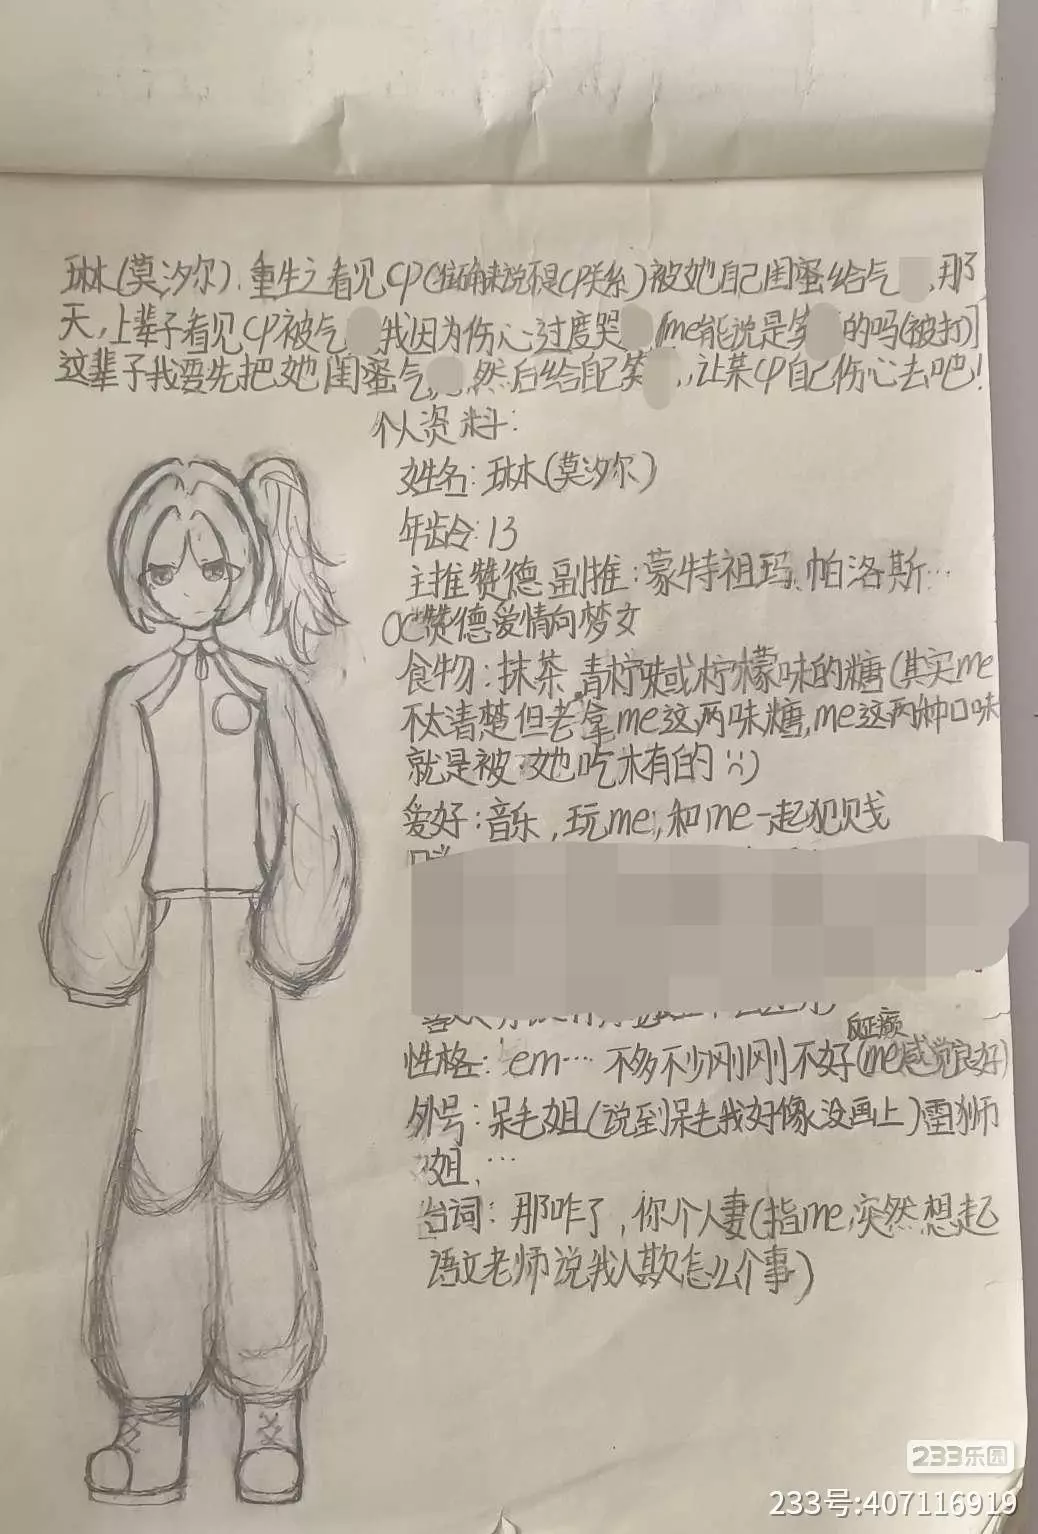 琳木(莫汐尔).重生之看见CP(准确来说不是CP关系)被她自己闺蜜给气 ,那
天,上辈子看见CP被气 我因为伤心过度哭 [me能说是笑 的吗(被打)]
这辈子我要先把她闺蜜气 ,然后给自己笑 ,让某CP自己伤心去吧!
个人资料:
姓名:琳木(莫汐尔)
年龄:13
主推赞德 副推:蒙特祖玛、帕洛斯…
OC赞德爱情向梦女
食物:抹茶、青柠味或柠檬味的糖(其实me
不太清楚但老拿me这两味糖,me这两种口味
就是被她吃木有的:()
爱好:音乐,玩me,和me一起犯贱
性格:em…不多不少刚刚不好(me感觉良好)
反正癫
外号:呆毛姐(说到呆毛我好像没画上)雷狮
姐,…
台词:那咋了,你个人妻(指me,突然想起
语文老师说我人欺怎么个事)
233乐园
233号:407116919